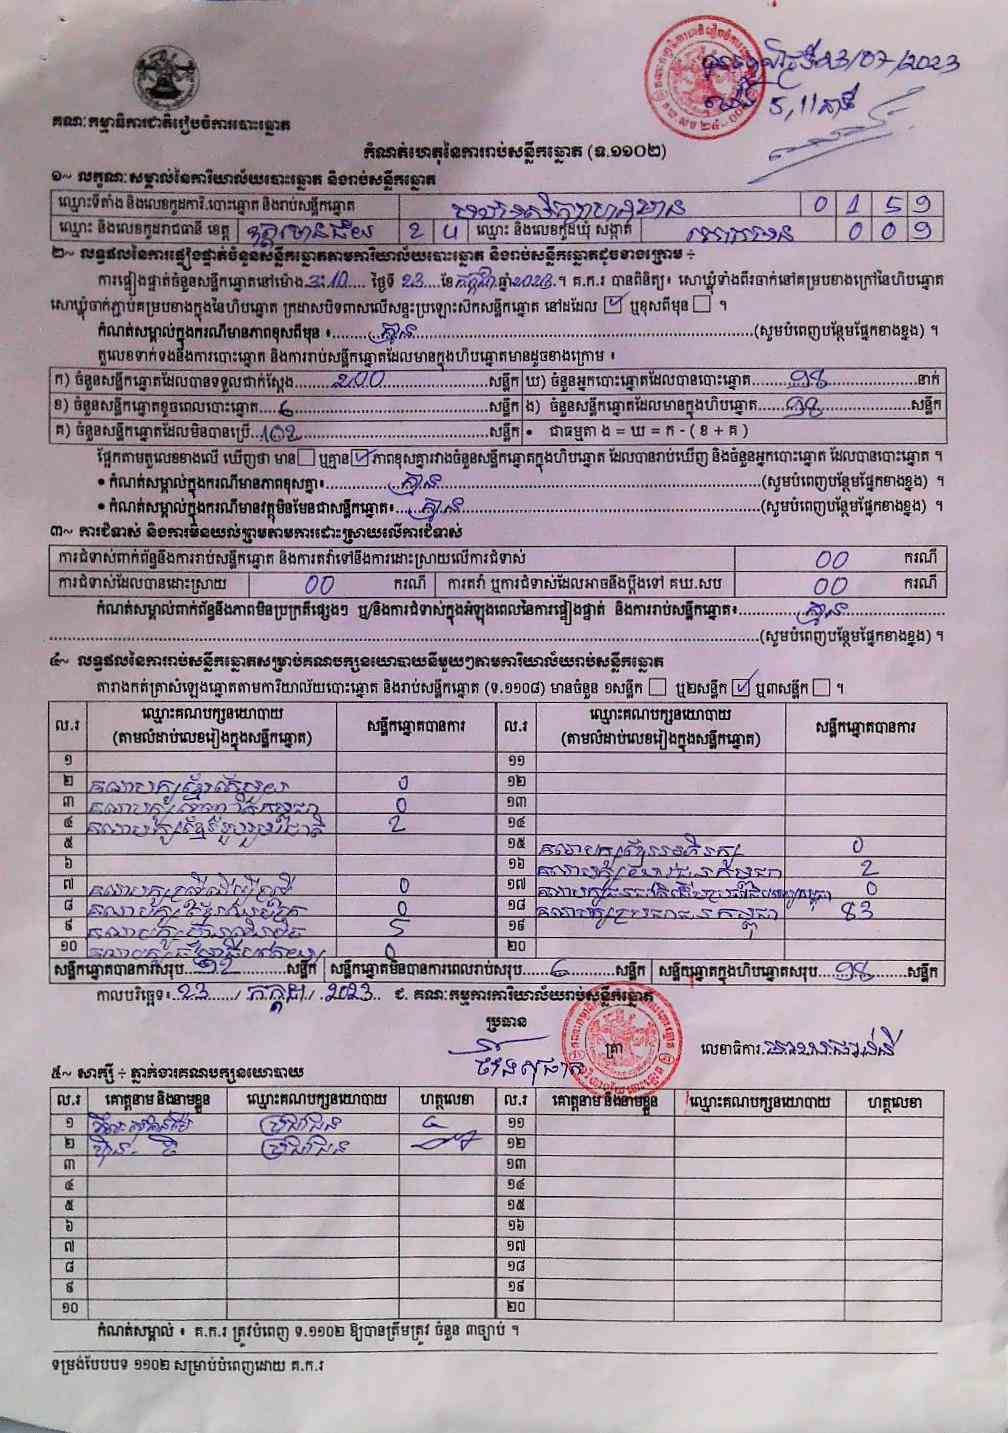 23/07/2023
5,11 នាទី
គណៈកម្មាធិការជាតិរៀបចំការបោះឆ្នោត
កំណត់ហេតុនៃការរាប់សន្លឹកឆ្នោត (ទ.១១០២)
១~ លក្ខណៈសម្គាល់នៃការិយាល័យបោះឆ្នោត និងរាប់សន្លឹកឆ្នោត
ឈ្មោះទីតាំង និងលេខកូដការិ.បោះឆ្នោត និងរាប់សន្លឹកឆ្នោត 0 1 5 9
ឈ្មោះ និងលេខកូដរាជធានី ខេត្ត ឧត្តរមានជ័យ ឈ្មោះ និងលេខកូដឃុំ សង្កាត់ 0 0 9
២~ លទ្ធផលនៃការផ្ទៀងផ្ទាត់ចំនួនសន្លឹកឆ្នោតតាមការិយាល័យបោះឆ្នោត និងរាប់សន្លឹកឆ្នោតដូចខាងក្រោម ÷
ការផ្ទៀងផ្ទាត់ចំនួនសន្លឹកឆ្នោតនៅម៉ោង 3:10 ថ្ងៃទី 23 ខែ កក្កដា ឆ្នាំ 2023 ។ គ.ក.រ បានពិនិត្យ៖ សោឃ្លុំទាំងពីរចាក់នៅគម្របខាងក្រៅនៃហិបឆ្នោត
សោឃ្លុំចាក់ភ្ជាប់គម្របខាងក្នុងនៃហិបឆ្នោត ក្រដាសបិទពាសលើសន្ទះប្រឡោះស៊ីកសន្លឹកឆ្នោត នៅដដែល ☑ ឬខុសពីមុន ☐ ។
កំណត់សម្គាល់ក្នុងករណីមានភាពខុសពីមុន ៖ គ្មាន (សូមបំពេញបន្ថែមផ្នែកខាងខ្នង) ។
តួលេខទាក់ទងនឹងការបោះឆ្នោត និងការរាប់សន្លឹកឆ្នោតដែលមានក្នុងហិបឆ្នោតមានដូចខាងក្រោម ៖
ក) ចំនួនសន្លឹកឆ្នោតដែលបានទទួលជាក់ស្តែង 200 សន្លឹក ឃ) ចំនួនអ្នកបោះឆ្នោតដែលបានបោះឆ្នោត 98 នាក់
ខ) ចំនួនសន្លឹកឆ្នោតខូចពេលបោះឆ្នោត សន្លឹក ង) ចំនួនសន្លឹកឆ្នោតដែលមានក្នុងហិបឆ្នោត 98 សន្លឹក
គ) ចំនួនសន្លឹកឆ្នោតដែលមិនបានប្រើ 102 សន្លឹក • ជាធម្មតា ង = ឃ = ក - ( ខ + គ )
ផ្អែកតាមតួលេខខាងលើ ឃើញថា មាន ☐ ឬគ្មាន ☑ ភាពខុសគ្នារវាងចំនួនសន្លឹកឆ្នោតក្នុងហិបឆ្នោត ដែលបានរាប់ឃើញ និងចំនួនអ្នកបោះឆ្នោត ដែលបានបោះឆ្នោត ។
• កំណត់សម្គាល់ក្នុងករណីមានភាពខុសគ្នា៖ គ្មាន (សូមបំពេញបន្ថែមផ្នែកខាងខ្នង) ។
• កំណត់សម្គាល់ក្នុងករណីមានវត្ថុមិនមែនជាសន្លឹកឆ្នោត៖ គ្មាន (សូមបំពេញបន្ថែមផ្នែកខាងខ្នង) ។
៣~ ការជំទាស់ និងការមិនយល់ព្រមតាមការដោះស្រាយលើការជំទាស់
ការជំទាស់ពាក់ព័ន្ធនឹងការរាប់សន្លឹកឆ្នោត និងការតវ៉ាទៅនឹងការដោះស្រាយលើការជំទាស់ 00 ករណី
ការជំទាស់ដែលបានដោះស្រាយ 00 ករណី ការតវ៉ា ឬការជំទាស់ដែលអាចនឹងប្តឹងទៅ គឃ.សប 00 ករណី
កំណត់សម្គាល់ពាក់ព័ន្ធនឹងភាពមិនប្រក្រតីផ្សេងៗ ឬ/និងការជំទាស់ក្នុងអំឡុងពេលនៃការផ្ទៀងផ្ទាត់ និងការរាប់សន្លឹកឆ្នោត៖ គ្មាន
(សូមបំពេញបន្ថែមផ្នែកខាងខ្នង) ។
៤~ លទ្ធផលនៃការរាប់សន្លឹកឆ្នោតសម្រាប់គណបក្សនយោបាយនីមួយៗតាមការិយាល័យរាប់សន្លឹកឆ្នោត
តារាងកត់ត្រាសំឡេងឆ្នោតតាមការិយាល័យបោះឆ្នោត និងរាប់សន្លឹកឆ្នោត (ទ.១១០៨) មានចំនួន ១សន្លឹក ☐ ឬ២សន្លឹក ☑ ឬ៣សន្លឹក ☐ ។
ល.រ ឈ្មោះគណបក្សនយោបាយ (តាមលំដាប់លេខរៀងក្នុងសន្លឹកឆ្នោត) សន្លឹកឆ្នោតបានការ ល.រ ឈ្មោះគណបក្សនយោបាយ (តាមលំដាប់លេខរៀងក្នុងសន្លឹកឆ្នោត) សន្លឹកឆ្នោតបានការ
១ ១១
២ គណបក្សខ្មែរតែមួយ 0 ១២
៣ គណបក្ស 0 ១៣
៤ គណបក្សខ្មែររួបរួមជាតិ 2 ១៤
៥ ១៥ គណបក្ស 0
៦ ១៦ គណបក្ស 2
៧ គណបក្ស 0 ១៧ គណបក្ស 0
៨ គណបក្ស 0 ១៨ គណបក្សប្រជាជនកម្ពុជា 83
៩ គណបក្ស 5 ១៩
១០ គណបក្ស 0 ២០
សន្លឹកឆ្នោតបានការសរុប 92 សន្លឹក សន្លឹកឆ្នោតមិនបានការពេលរាប់សរុប 6 សន្លឹក សន្លឹកឆ្នោតក្នុងហិបឆ្នោតសរុប 98 សន្លឹក
កាលបរិច្ឆេទ៖ 23 / កក្កដា / 2023 ជ. គណៈកម្មការការិយាល័យរាប់សន្លឹកឆ្នោត
ប្រធាន
ត្រា
លេខាធិការ
៥~ សាក្សី ÷ ភ្នាក់ងារគណបក្សនយោបាយ
ល.រ គោត្តនាម និងនាមខ្លួន ឈ្មោះគណបក្សនយោបាយ ហត្ថលេខា ល.រ គោត្តនាម និងនាមខ្លួន ឈ្មោះគណបក្សនយោបាយ ហត្ថលេខា
១ ប្រជាជន ១១
២ ប្រជាជន ១២
៣ ១៣
៤ ១៤
៥ ១៥
៦ ១៦
៧ ១៧
៨ ១៨
៩ ១៩
១០ ២០
កំណត់សម្គាល់ ៖ គ.ក.រ ត្រូវបំពេញ ទ.១១០២ ឱ្យបានត្រឹមត្រូវ ចំនួន ៣ច្បាប់ ។
ទម្រង់បែបបទ ១១០២ សម្រាប់បំពេញដោយ គ.ក.រ